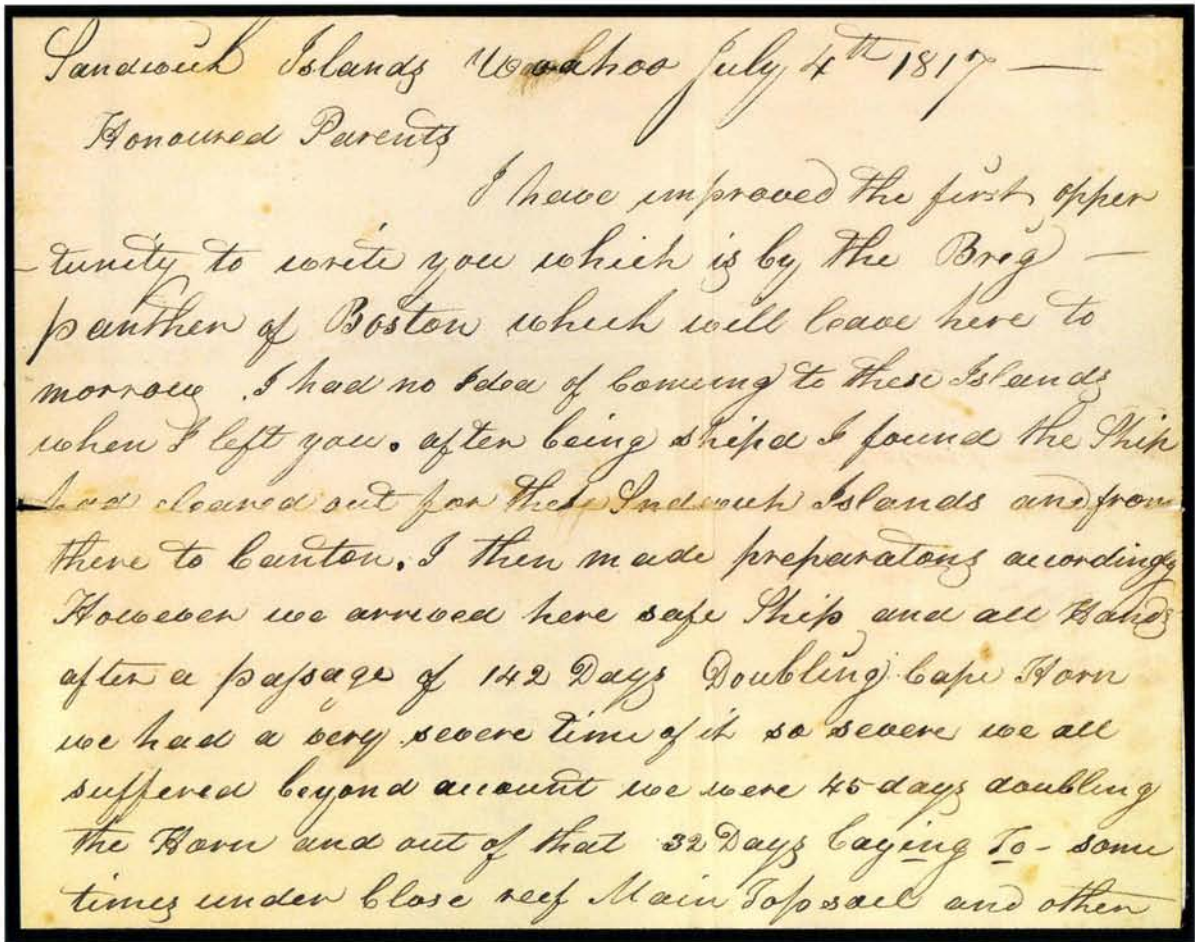 Sandwich Islands Woahoo July 4th 1817 —
Honoured Parents
I have improved the first opper
-tunity to write you which is by the Brig —
panther of Boston which will leave here to
morrow. I had no Idea of Comeing to these Islands
when I left you. after being shipd I found the Ship
had cleared out for these Sndwich Islands and from
there to Canton. I then made preparatons accordingly
However we arrived here safe Ship and all Hands
after a passage of 142 Days Doubling Cape Horn
we had a very severe time of it so severe we all
suffered beyond account we were 45 days doubling
the Horn and out of that 32 Days Laying To - some
times under Close reef Main Topsail and other